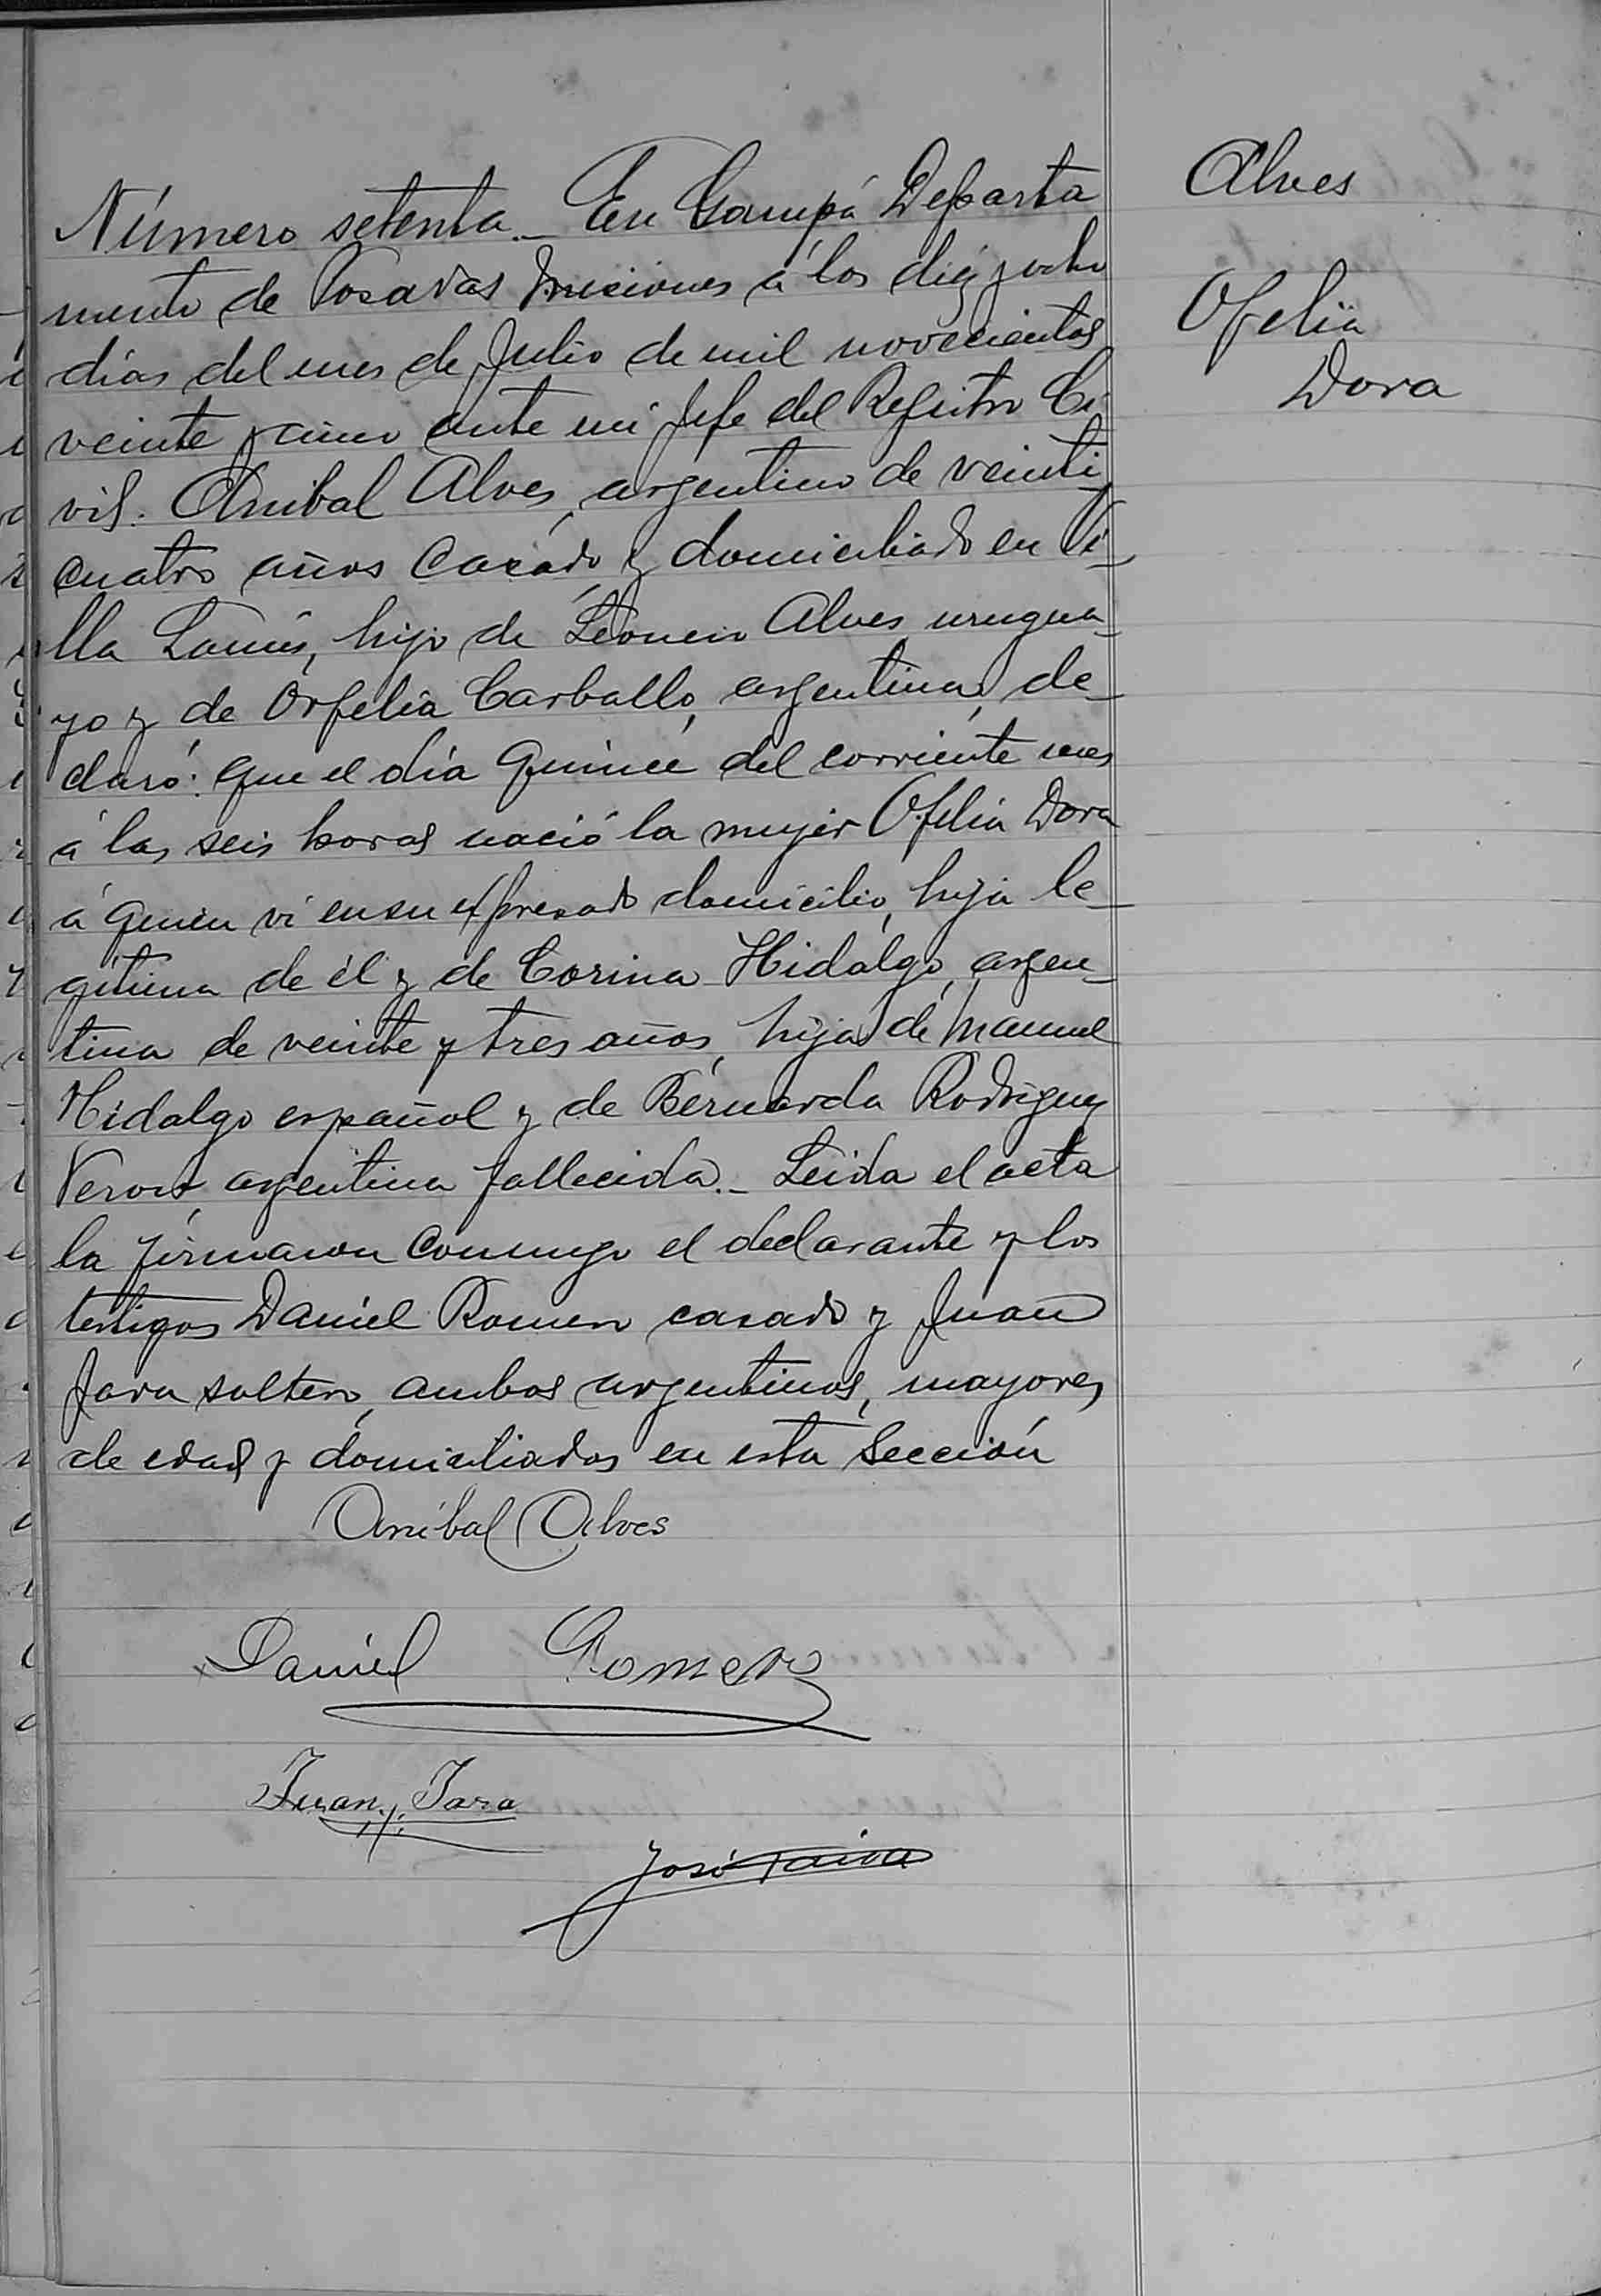 Alves
Ofelia
Dora
Número setenta._ En Garupá Departa
mento de Posadas Misiones á los diez y ocho
días del mes de Julio de mil novecientos
veinte y cinco ante mi Jefe del Registro Ci
vil: Anibal Alves, argentino de veinti
cuatro años casado y domiciliado en Vi_
lla Lanús, hijo de Leoncio Alves urugua_
yo y de Orfelia Carballo, argentina, de_
claró: que el día quince del corriente mes
á las seis horas nació la mujer Ofelia Dora
á quien ví en su expresado domicilio, hija le_
gítima de él y de Corina Hidalgo, argen_
tina de veinte y tres años, hija de Manuel
Hidalgo español y de Bernarda Rodriguez
argentina fallecida._ Leida el acta
la firmaron conmigo el declarante y los
testigos Daniel Romero casado y Juan
Jara soltero, ambos argentinos, mayores
de edad y domiciliados en esta Sección
Anibal Alves
Daniel Romero
Juan Jara
José Paiva